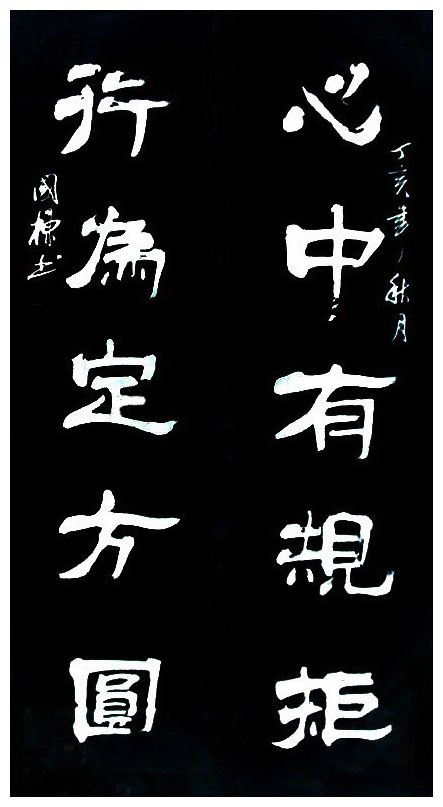 丁亥年秋月
心中有規矩
行為定方圓
國書